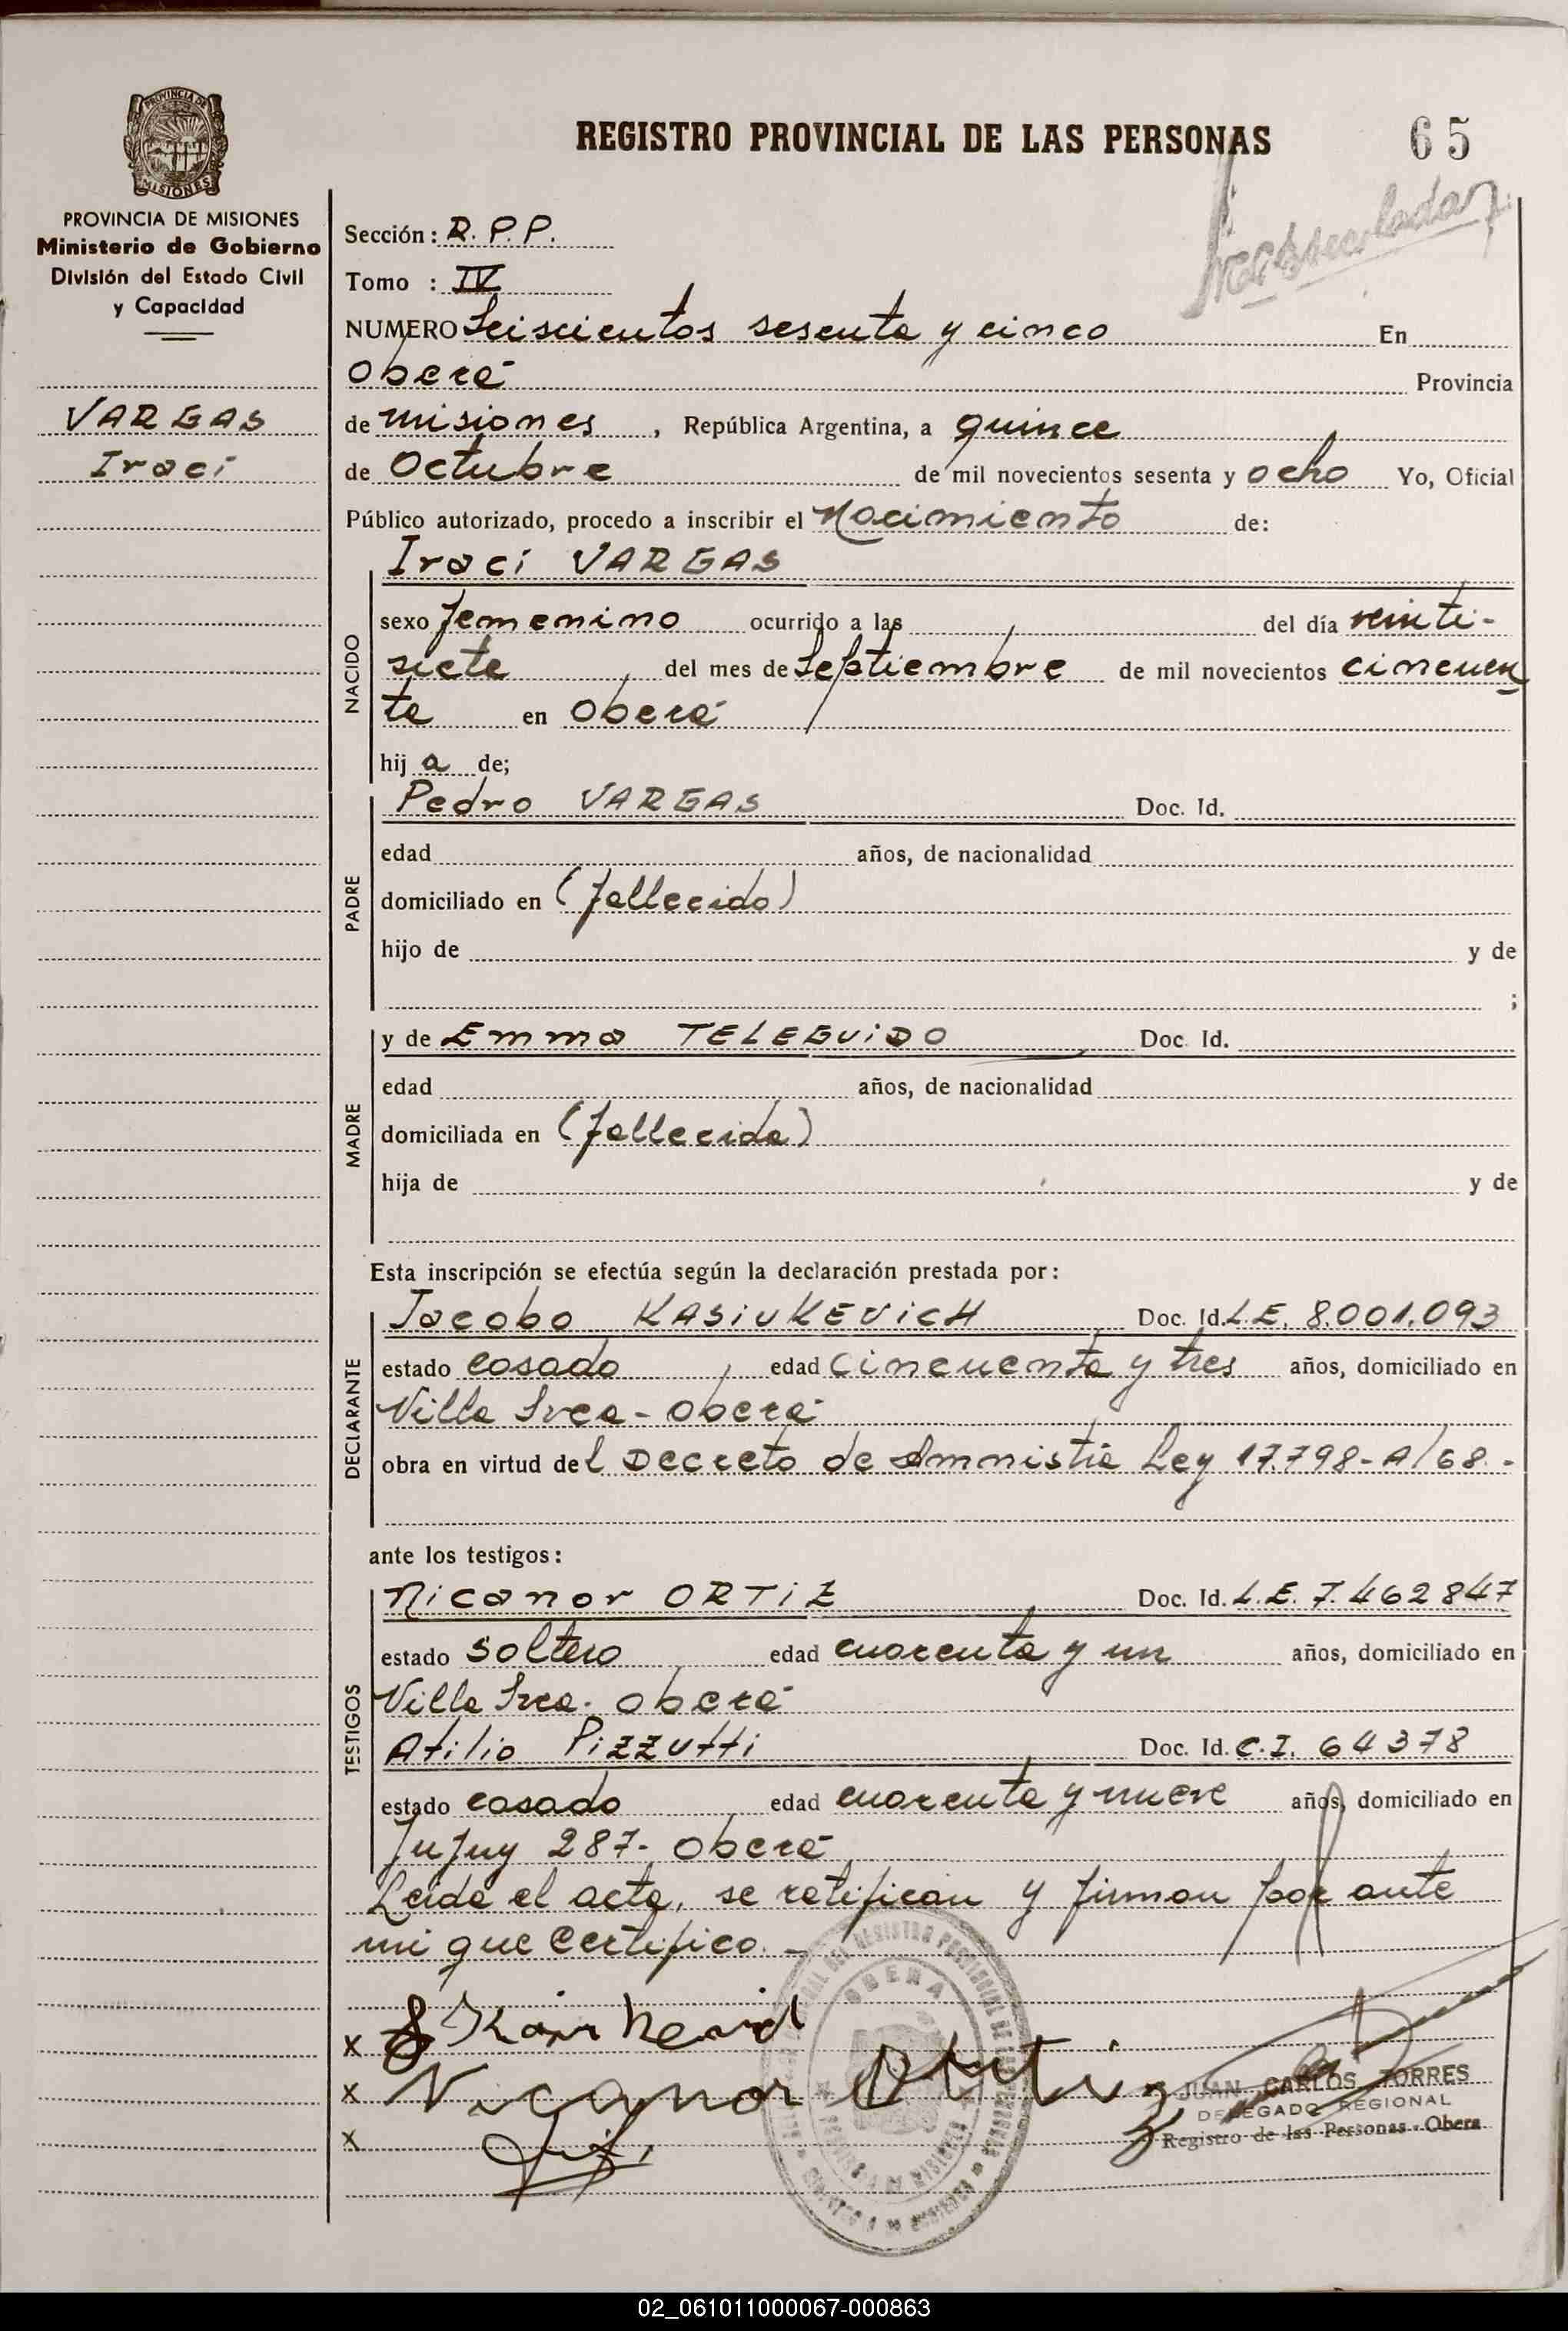 REGISTRO PROVINCIAL DE LAS PERSONAS
65
PROVINCIA DE
MISIONES
PROVINCIA DE MISIONES
Ministerio de Gobierno
División del Estado Civil
y Capacidad
VARGAS
Iraci
Sección: R.P.P.
Tomo : IV
NUMERO Seiscientos sesenta y cinco En
Oberá Provincia
de Misiones, República Argentina, a quince
de Octubre de mil novecientos sesenta y ocho Yo, Oficial
Público autorizado, procedo a inscribir el Nacimiento de:
Iraci VARGAS
NACIDO
sexo femenino ocurrido a las del día veinti-
siete del mes de Septiembre de mil novecientos cincuen
ta en Oberá
hij a de;
PADRE
Pedro VARGAS Doc. Id.
edad años, de nacionalidad
domiciliado en (fallecido)
hijo de y de
;
MADRE
y de Emma TELEGUIDO Doc. Id.
edad años, de nacionalidad
domiciliada en (fallecida)
hija de y de
Esta inscripción se efectúa según la declaración prestada por:
DECLARANTE
Jacobo KASIUKEVICH Doc. Id. L.E. 8.001.093
estado casado, edad cincuenta y tres años, domiciliado en
Villa Svea - Oberá
obra en virtud del Decreto de Amnistía Ley 17.798-A/68.-
ante los testigos:
TESTIGOS
Nicanor ORTIZ Doc. Id. L.E. 7.462847
estado soltero edad cuarenta y un años, domiciliado en
Villa Svea. Oberá
Atilio Pizzutti Doc. Id. C.I. 64378
estado casado edad cuarenta y nueve años, domiciliado en
Jujuy 287- Oberá
Leída el acta, se ratifican y firman por ante
mi que Certifico.-
OBERA
x
x Nicanor Ortiz
x
JUAN CARLOS TORRES
DELEGADO REGIONAL
Registro de las Personas - Obera
02_061011000067-000863